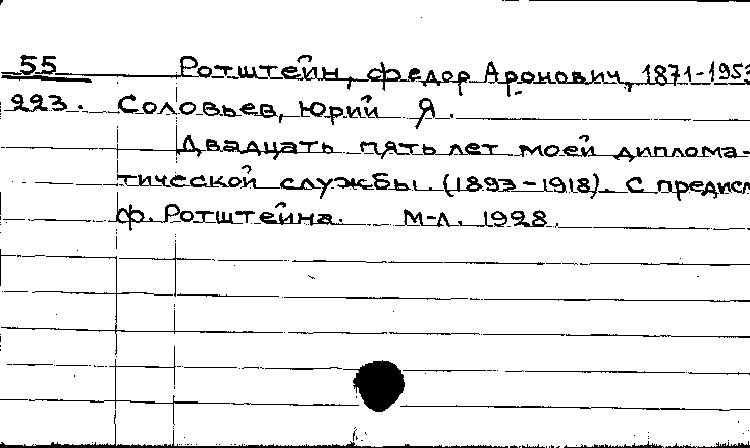 55 Ротштейн, Федор Аронович, 1871-1953
223. Соловьев, Юрий Я.
Двадцать пять лет моей диплома-
тической службы. (1893-1918). С предисл
Ф. Ротштейна. М-Л. 1928.